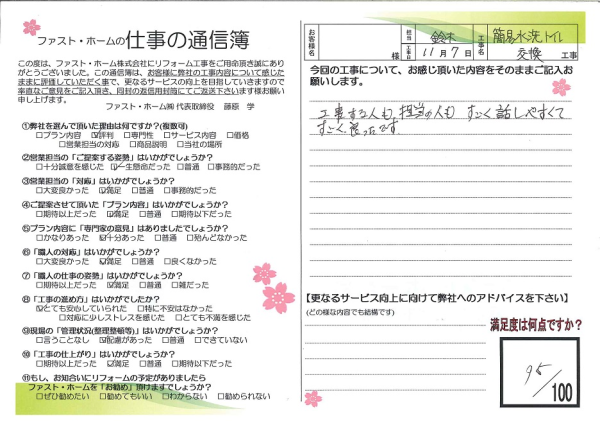 ファスト・ホームの 仕事の通信簿
この度は、ファスト・ホーム株式会社にリフォーム工事をご用命頂き誠にあり
がとうございました。この通信簿は、お客様に弊社の工事内容について感じた
ままに評価していただく事で、更なるサービスの向上を目指していきますので
率直なご意見をご記入頂き、同封の返信用封筒にてご返送下さいます様お願い
申し上げます。
ファスト・ホーム㈱ 代表取締役 藤原 学
①弊社を選んで頂いた理由は何ですか?(複数可)
□プラン内容 ☑評判 □専門性 □サービス内容 □価格
□営業担当の対応 □商品説明 □当社の場所
②営業担当の「ご提案する姿勢」はいかがでしょうか?
□十分誠意を感じた ☑一生懸命だった □普通 □事務的だった
③営業担当の「対応」はいかがでしょうか?
□大変良かった ☑満足 □普通 □事務的だった
④ご提案させて頂いた「プラン内容」はいかがでしょうか?
□期待以上だった ☑満足 □普通 □期待以下だった
⑤プラン内容に「専門家の意見」はありましたでしょうか?
□かなりあった ☑十分あった □普通 □殆んどなかった
⑥「職人の対応」はいかがでしょうか?
□大変良かった ☑満足 □普通 □良くなかった
⑦「職人の仕事の姿勢」はいかがでしょうか?
□期待以上だった ☑満足 □普通 □雑だった
⑧「工事の進め方」はいかがでしたか?
☑とても安心していられた □特に不安はなかった
□対応に少しストレスを感じた □とても不満を感じた
⑨現場の「管理状況(整理整頓等)」はいかがでしょうか?
□言うことなし ☑配慮があった □普通 □できていない
⑩「工事の仕上がり」はいかがでしょうか?
□期待以上だった ☑満足 □普通 □期待以下だった
⑪もし、お知合いにリフォームの予定がありましたら
ファスト・ホームを「お勧め」頂けますでしょうか?
□ぜひ勧めたい □勧めてもいい □わからない □勧められない
お客様名 様
担当 鈴木
工事日 11月7日
工事名 簡易水洗トイレ
交換 工事
今回の工事について、お感じ頂いた内容をそのままご記入お
願いします。
工事する人も、担当の人も すごく話しやすくて
すごく良ったです
【更なるサービス向上に向けて弊社へのアドバイスを下さい】
(どの様な内容でも結構です)
満足度は何点ですか?
95/100